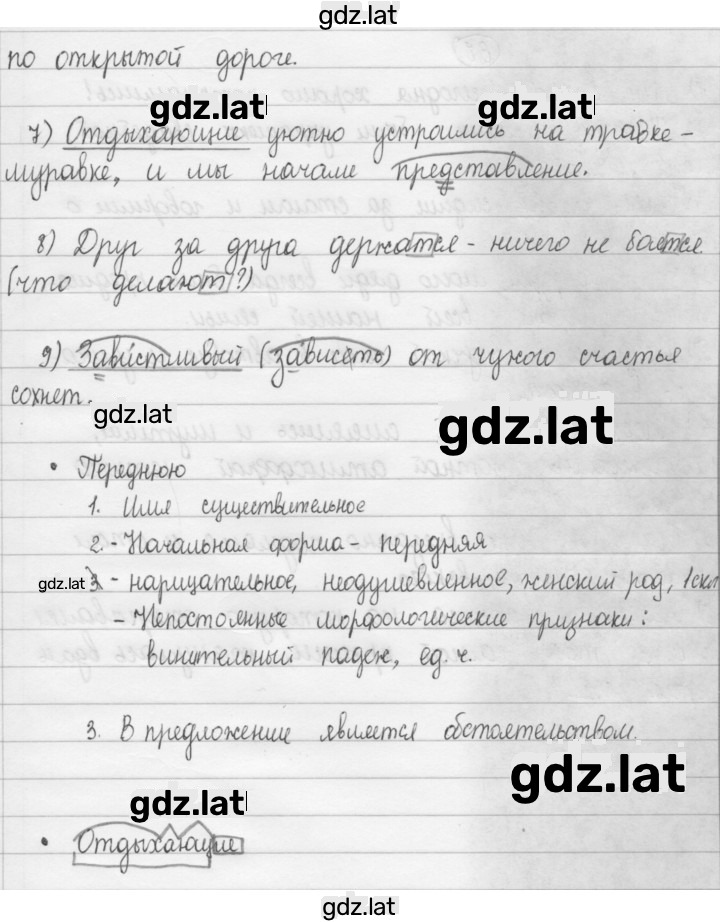 gdz.lat
по открытой дороге.
gdz.lat gdz.lat
7) Отдыхающие уютно устроились на травке-
муравке, и мы начали представление.
8) Друг за друга держатся - ничего не боятся
(что делают?)
9) Завистливый (зависеть) от чужого счастья
сохнет.
gdz.lat gdz.lat
• Переднюю
1. Имя существительное
2. - Начальная форма - передняя
gdz.lat - нарицательное, неодушевленное, женский род, 1скл
- Непостоянные морфологические признаки:
винительный падеж, ед. ч.
3. В предложение является обстоятельством.
gdz.lat
gdz.lat
• Отдыхающие
gdz.lat